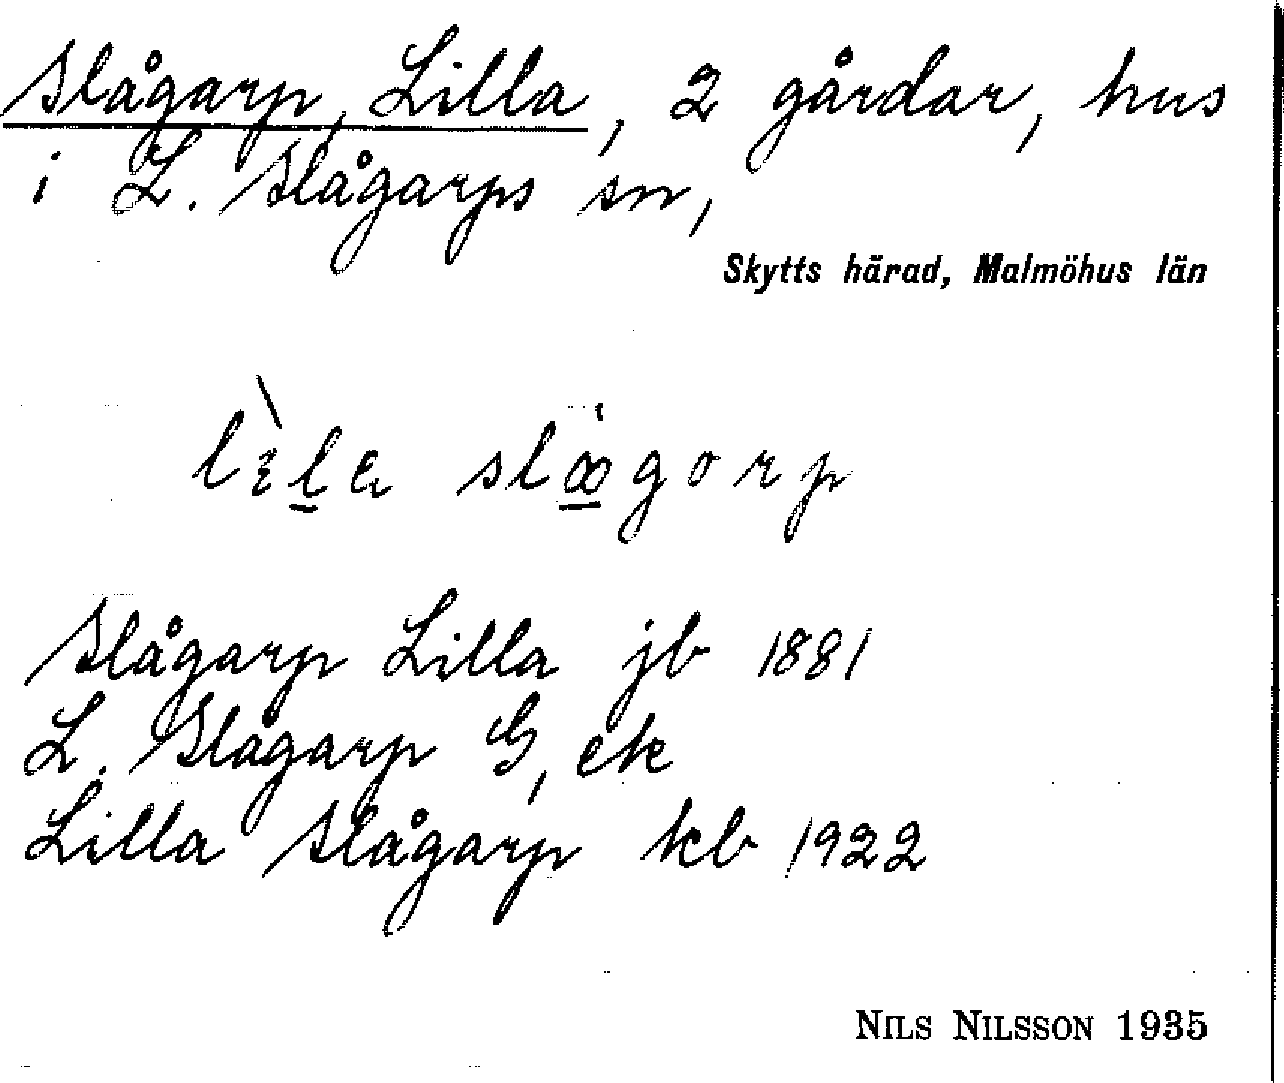 Slågarp, Lilla, 2 gårdar, hus
i L. Slågarps sn,
Skytts härad, Malmöhus län
Slågarp Lilla jb 1881
L. Slågarp G, ek
Lilla Slågarp kb 1922
NILS NILSSON 1935